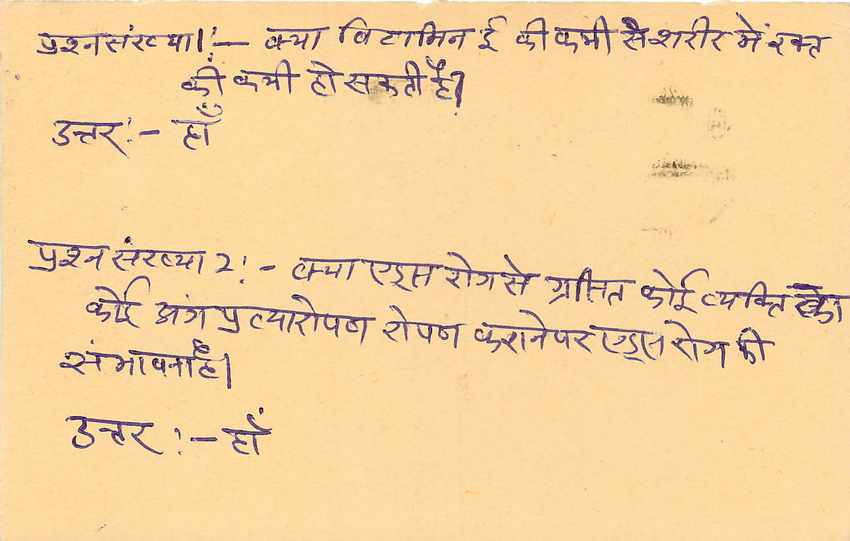 प्रश्न संख्या 1:- क्या विटामिन ई की कमी से शरीर में रक्त
की कमी हो सकती है।
उत्तर:- हाँ
प्रश्न संख्या 2:- क्या एड्स रोग से ग्रसित कोई व्यक्ति का
कोई अंग प्रत्यारोपण रोपण कराने पर एड्स रोग की
संभावना है।
उत्तर:- हाँ